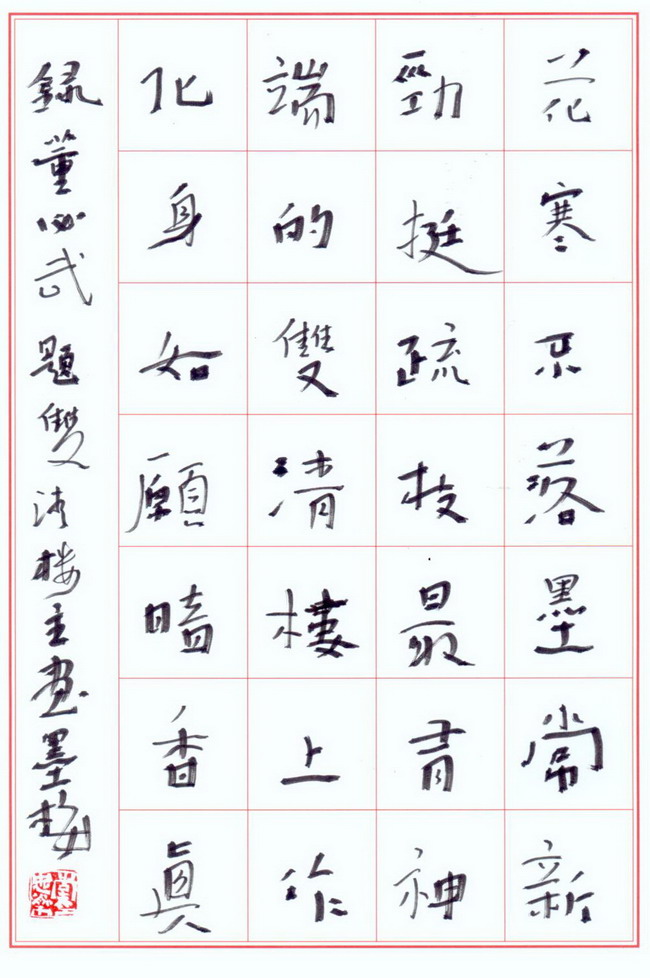 花寒不落墨常新
勁挺疏枝最肖神
端的雙清樓上作
化身如願香眞
録董必武題雙清楼主畫墨梅